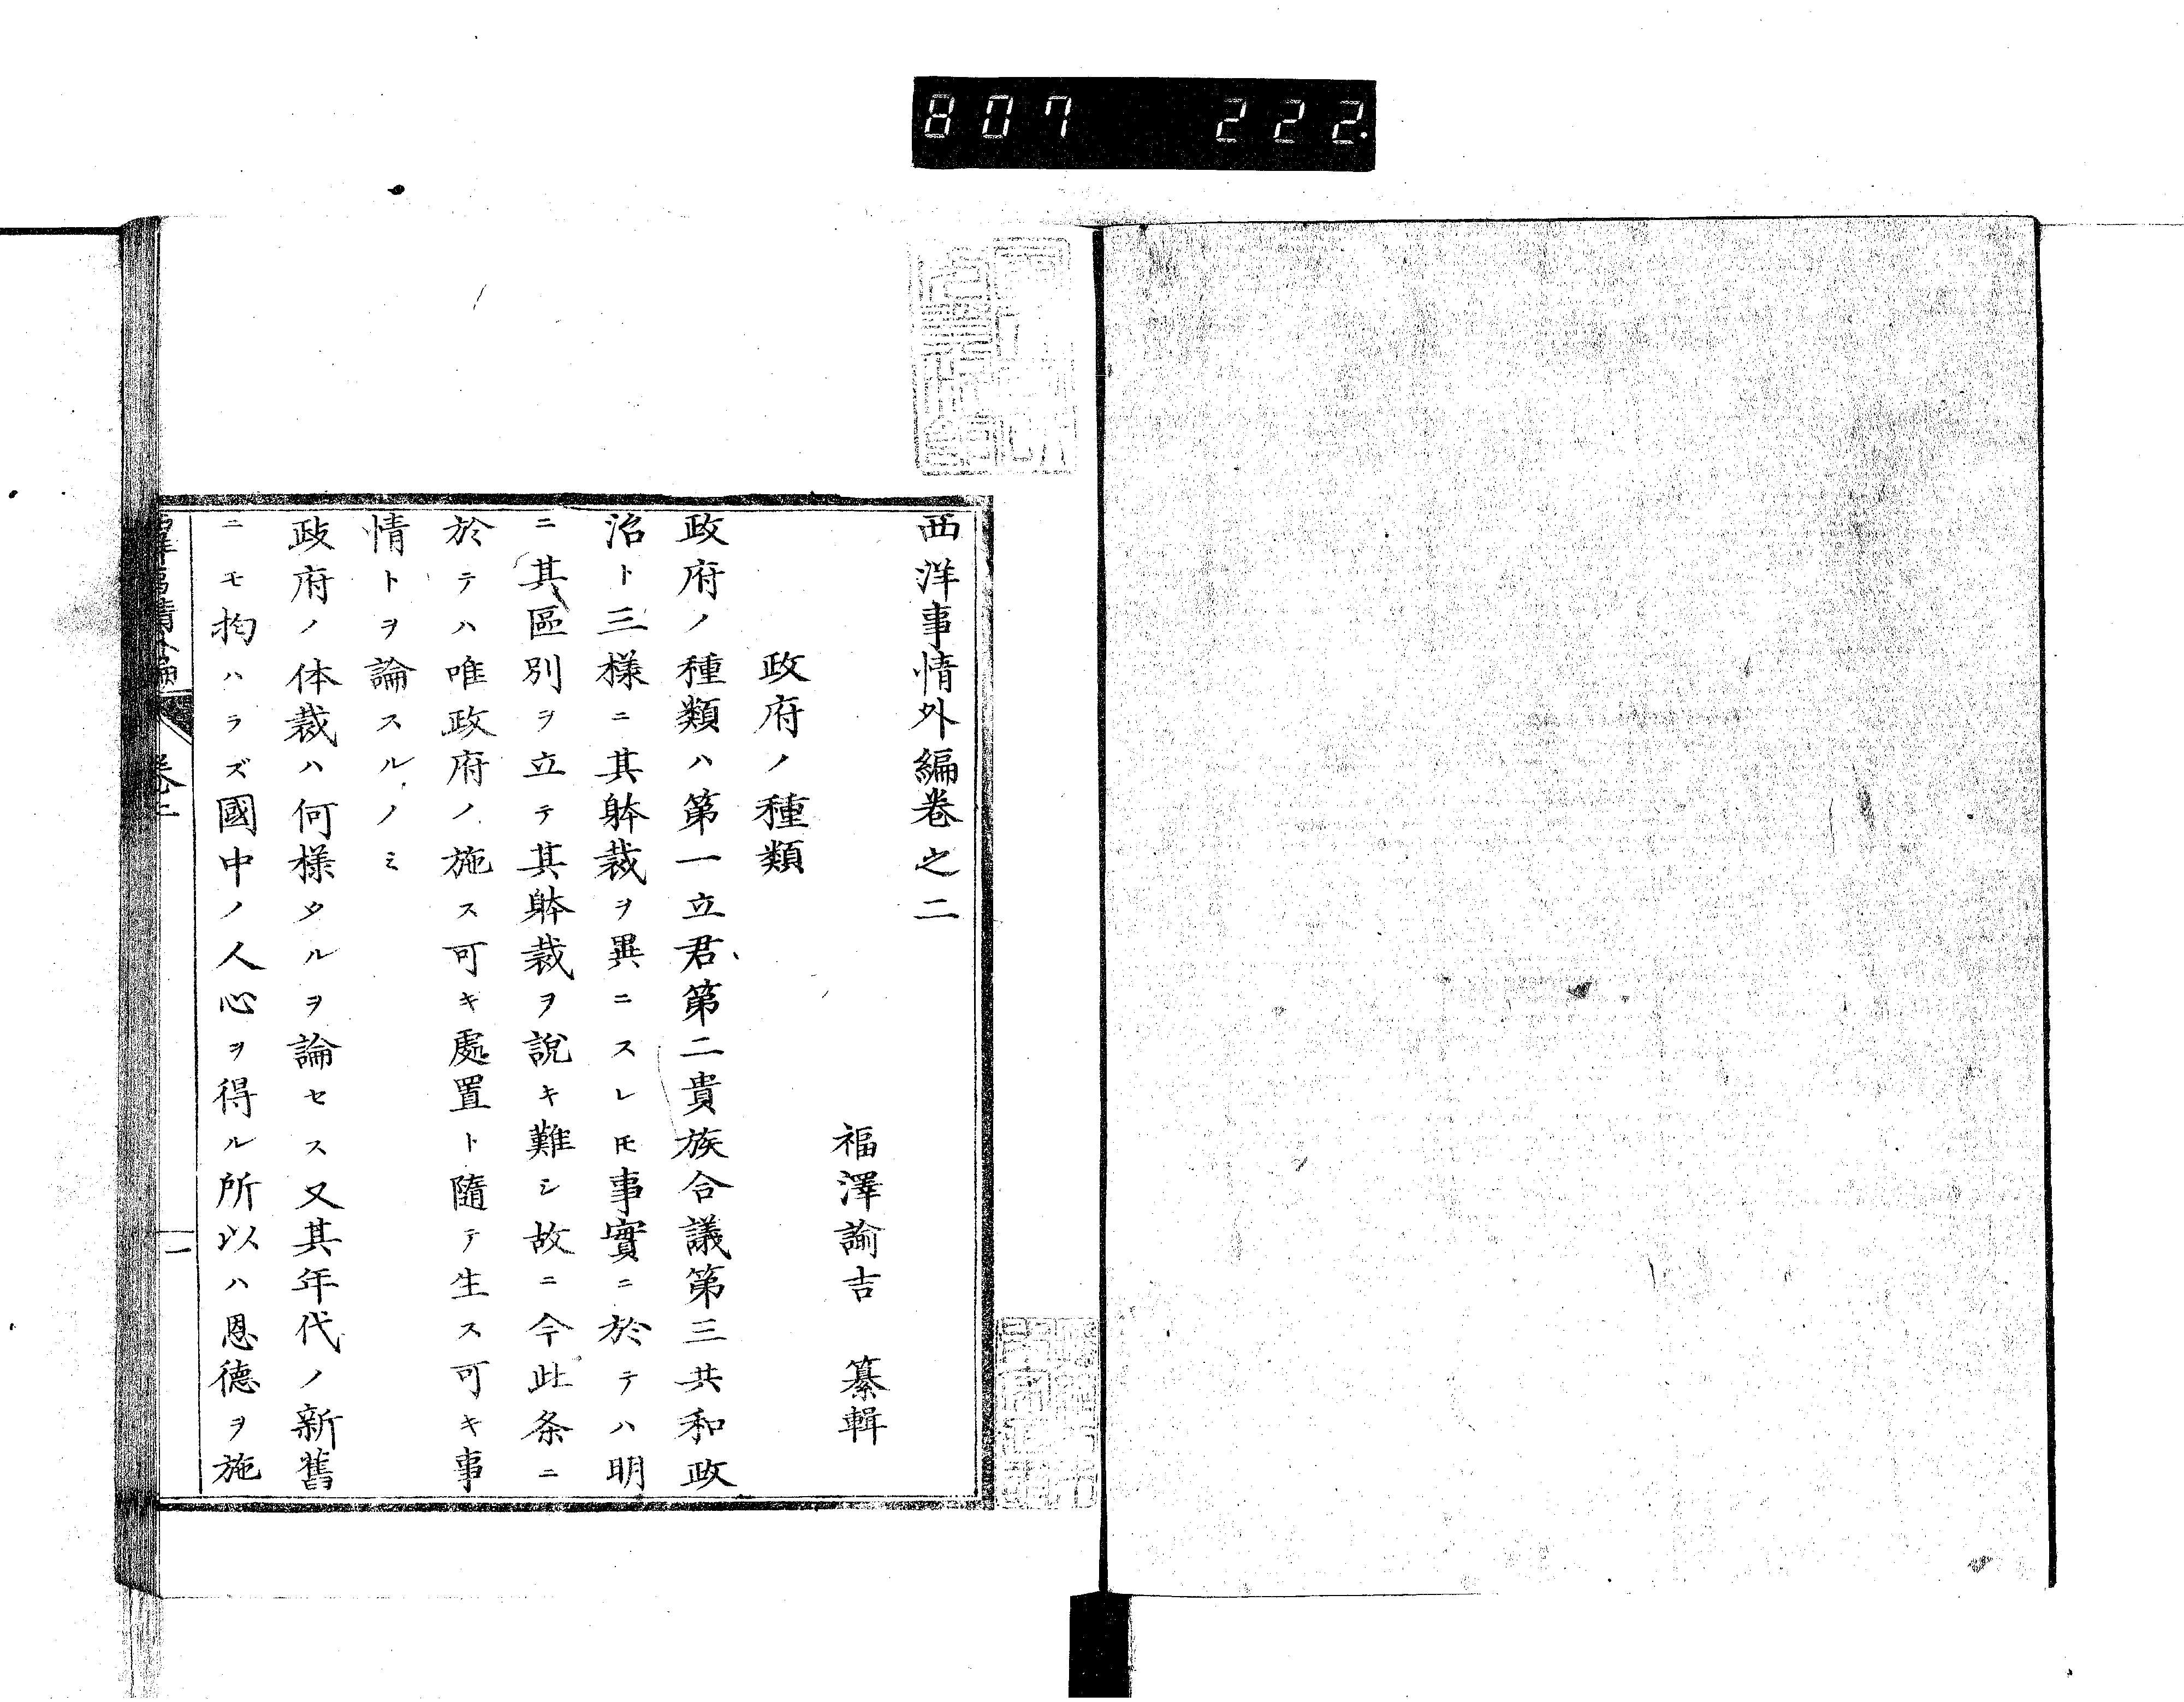 807 222
西洋事情外編卷之二
福澤諭吉 纂輯
政府ノ種類
政府ノ種類ハ第一立君第二貴族合議第三共和政
治ト三樣ニ其躰裁ヲ異ニスレ𪜈事實ニ於テハ明
ニ其區別ヲ立テ其躰裁ヲ說キ難シ故ニ今此条ニ
於テハ唯政府ノ施ス可キ處置ト隨テ生ス可キ事
情トヲ論スルノミ
政府ノ体裁ハ何樣タルヲ論セス又其年代ノ新舊
ニモ拘ハラズ國中ノ人心ヲ得ル所以ハ恩德ヲ施
西洋事情外編 卷二 一